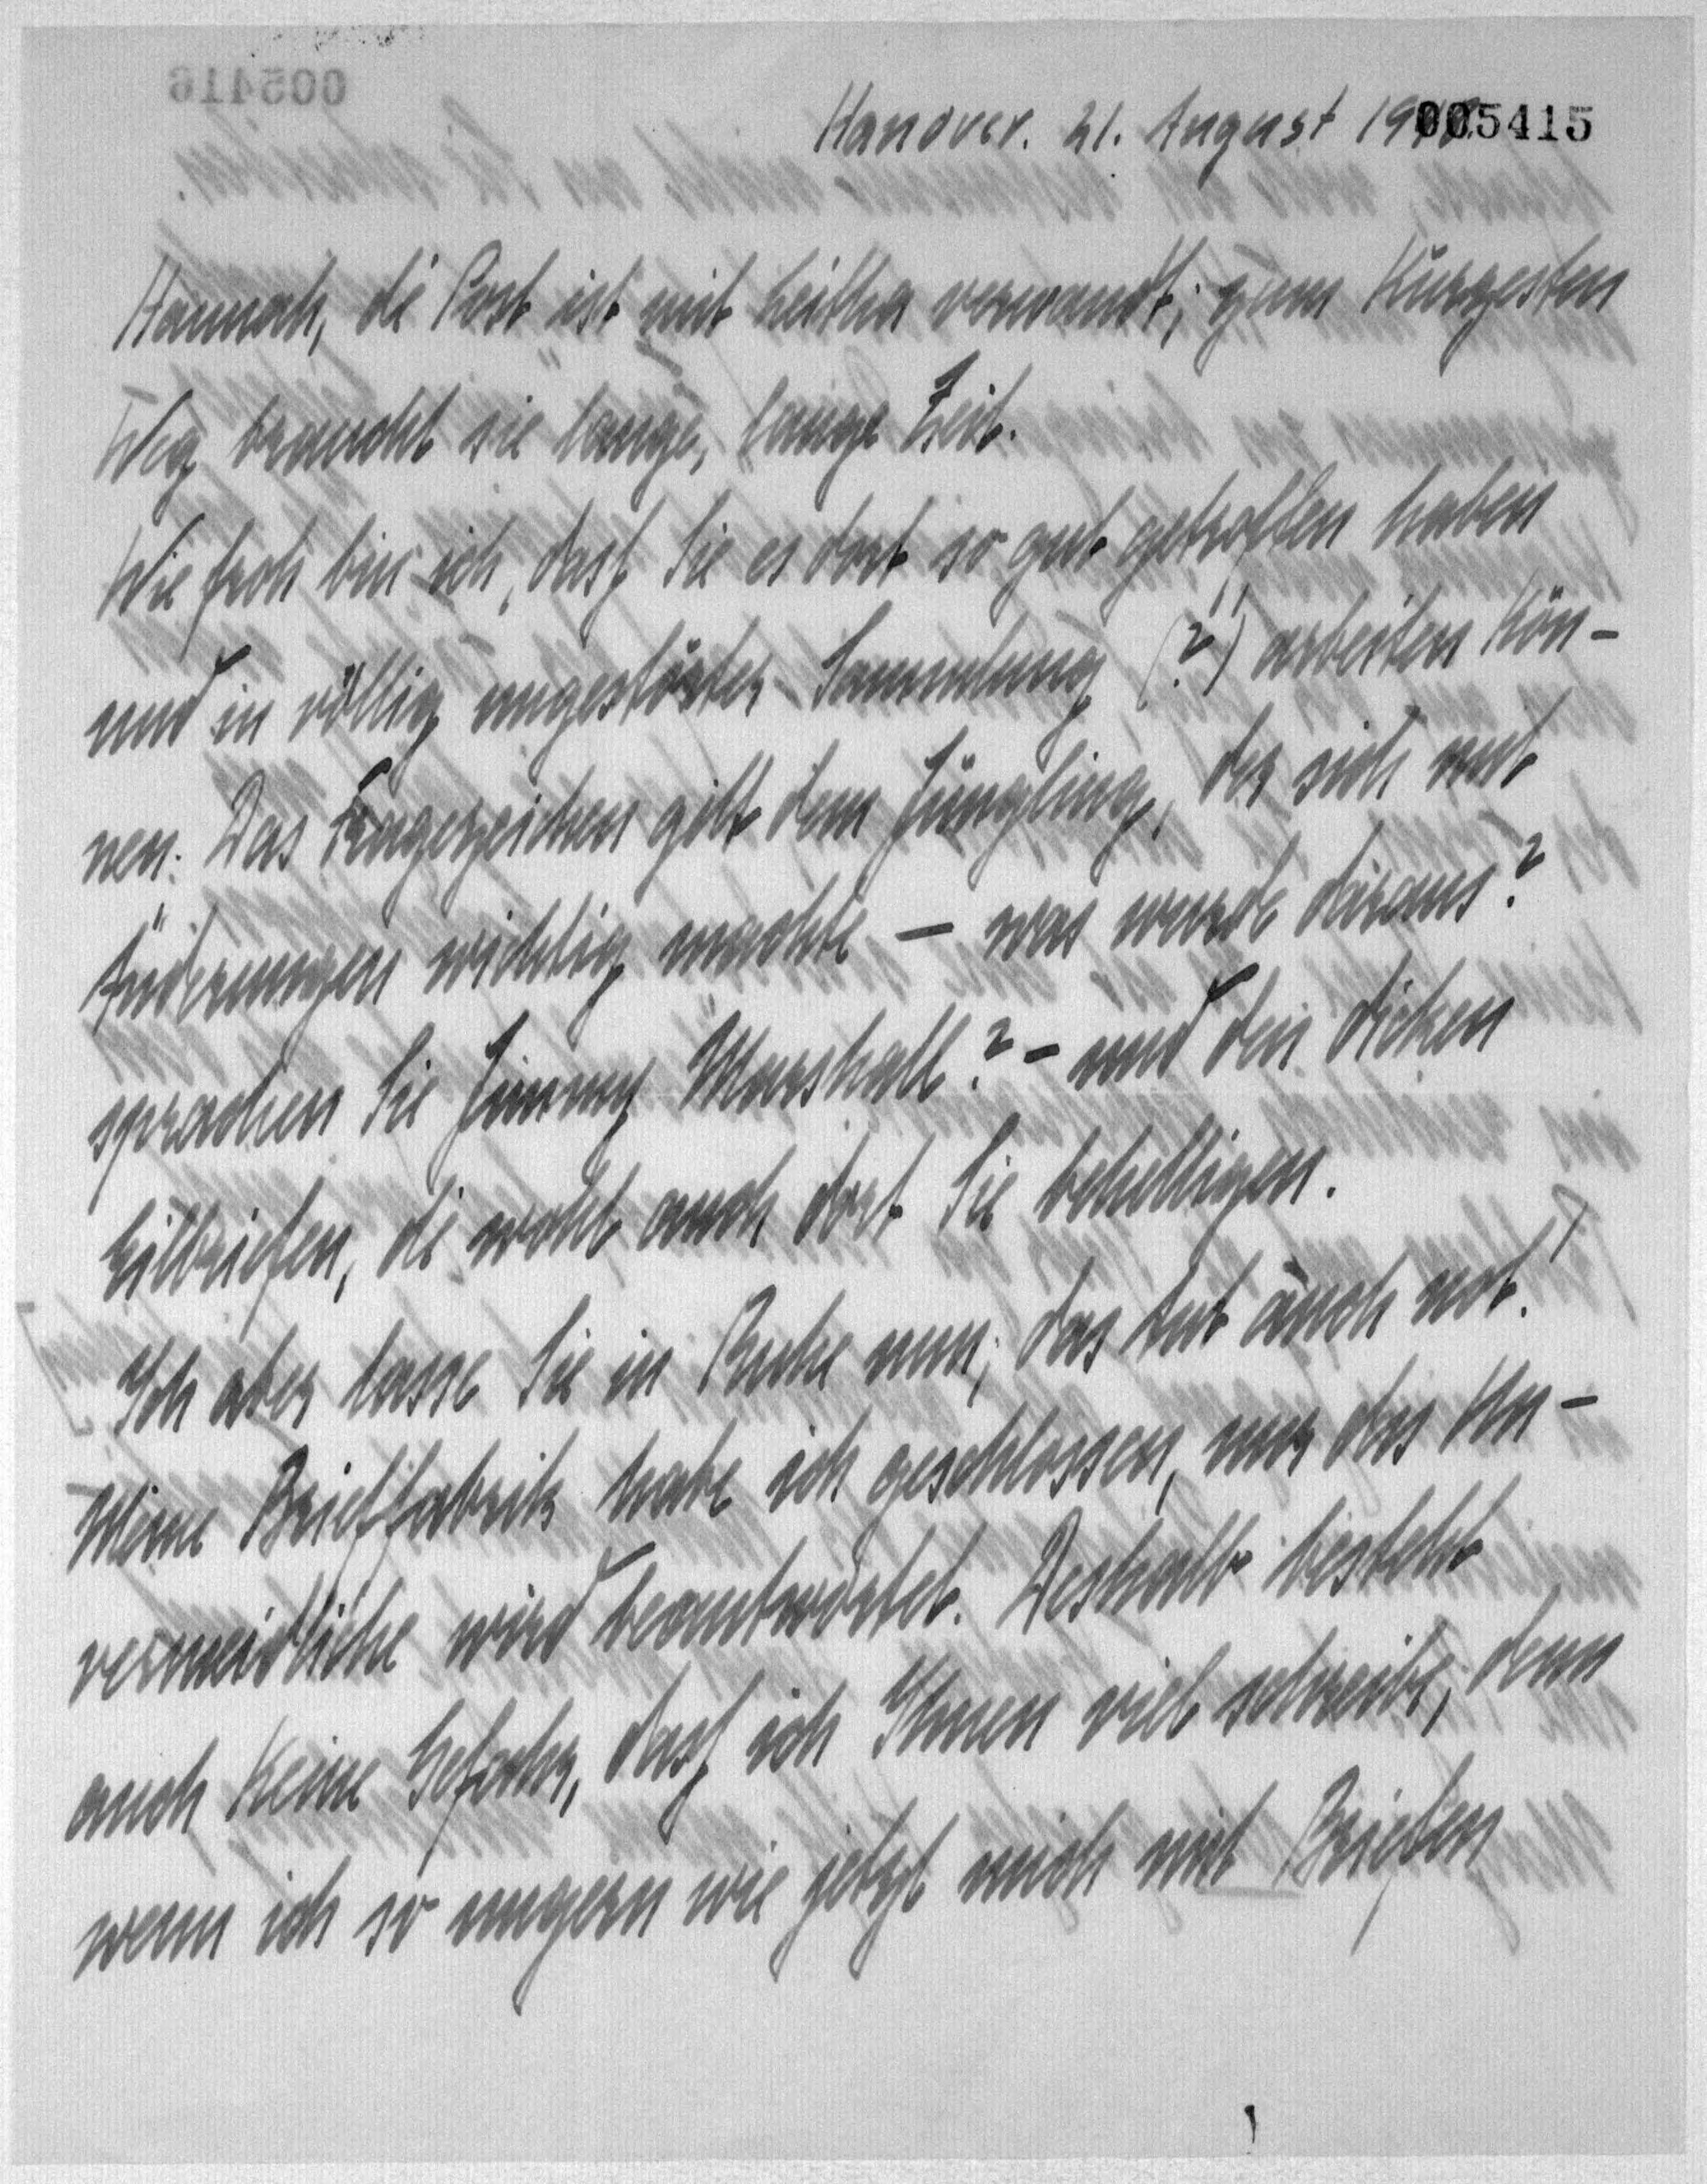 005415
Hanover. 21. August 19
Hannah, die Post ist mit verwandt; zum Kürzesten
Weg braucht sie lange, lange Zeit.
Wie froh bin ich, dass Sie es dort so gut getroffen haben
und in völlig ungestörter Sammlung (?!) arbeiten kön-
nen. Das Fragezeichen gilt dem Jüngling, der sich mit
Änderungen wichtig machte — was wurde daraus?
sprachen Sie Jimmy Marshall? - und den dicken
Eilbriefen, die wohl auch dort Sie behelligen.
Ich aber lasse Sie in Ruhe nun; das tut auch not!
Meine Brieffabrik habe ich geschlossen, nur das Un-
vermeidliche wird beantwortet. Deshalb besteht
auch keine Gefahr, dass ich Ihnen viel schreibe; denn
wenn ich so ungern wie jetzt mich mit Briefen